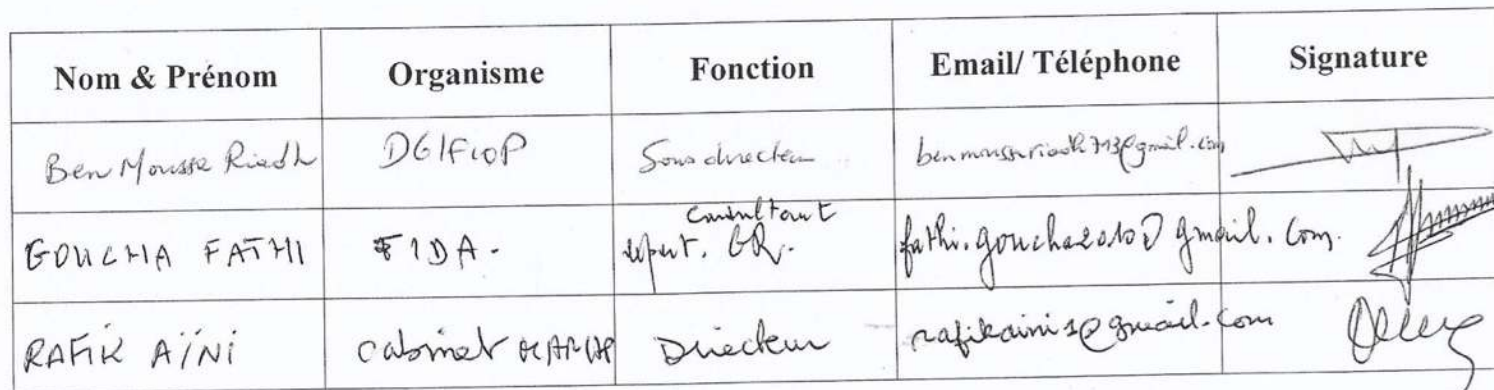 Nom & Prénom Organisme Fonction Email/ Téléphone Signature
Ben Mousse Riadh DGIFIOP Sous directeur benmoussariadh713@gmail.com
consultant
GOUCHA FATHI FIDA. expert. GR. fathi.goucha2010@gmail.com.
RAFIK AÏNI Cabinet Directeur rafikaini1@gmail.com